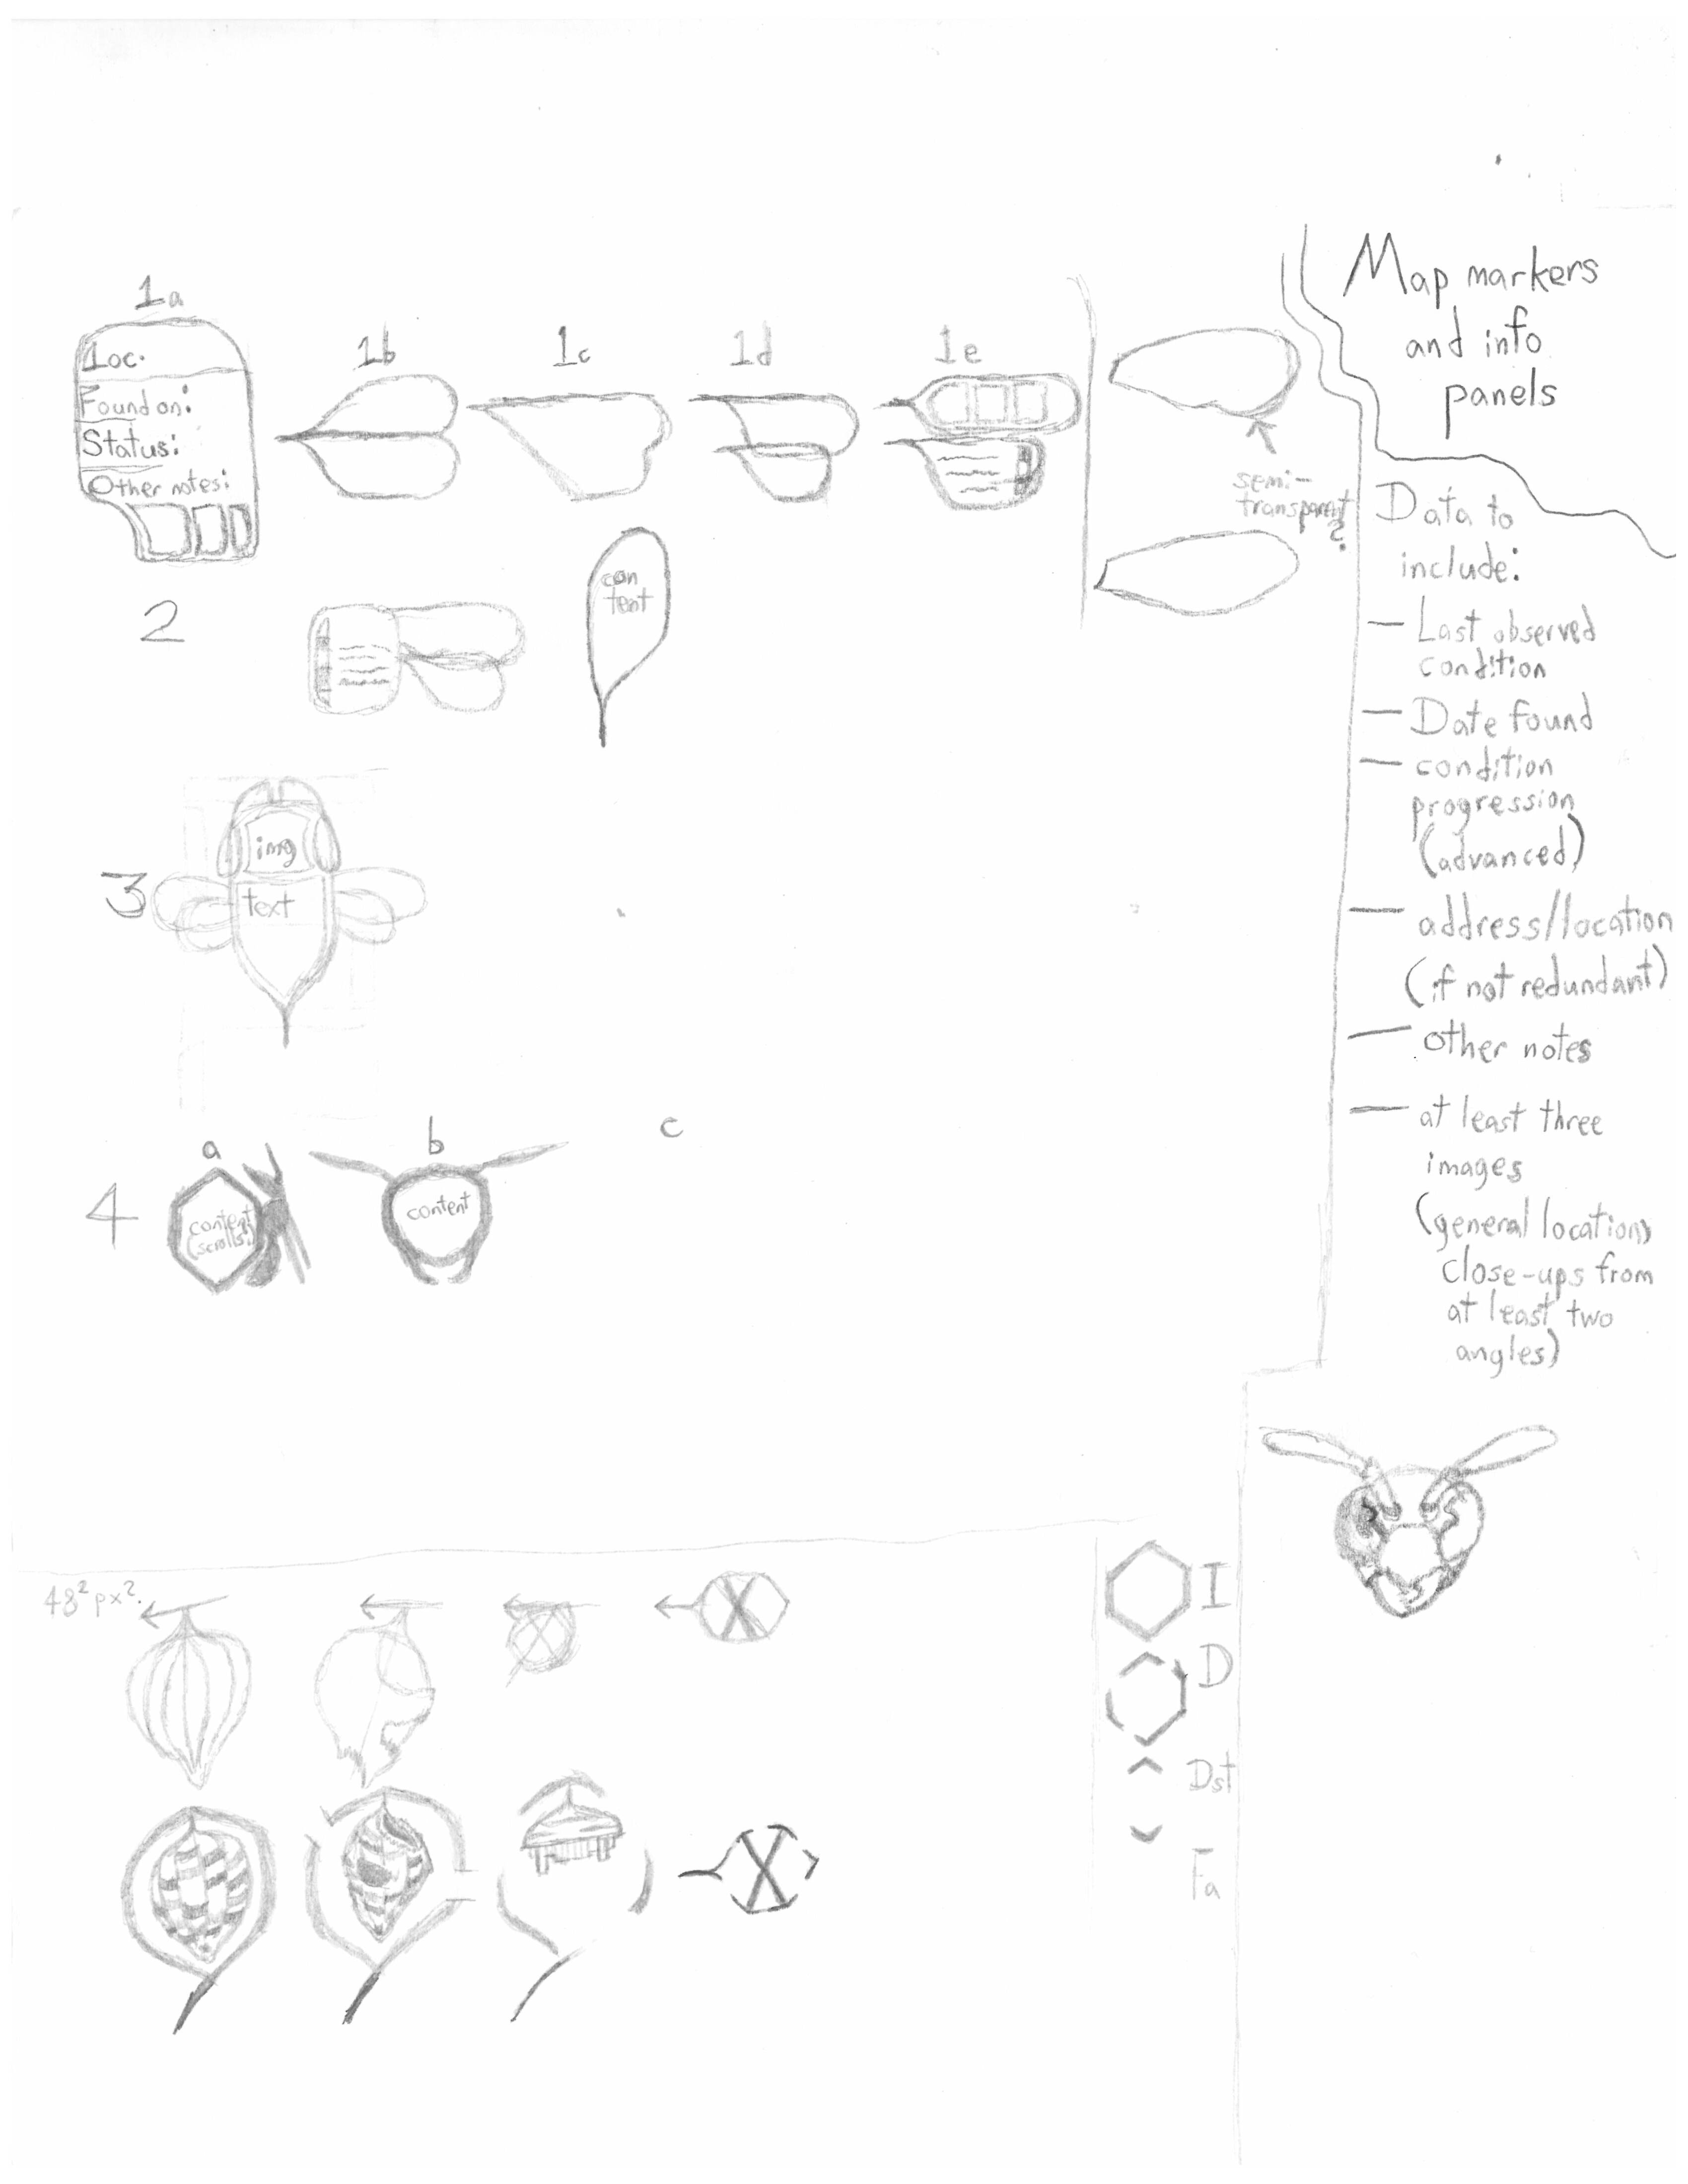 Map markers
and info
panels
1a
Loc.
Found on:
Status:
Other notes:
1b
1c
1d
1e
semi-
transparent
?
2
con
tent
3
img
text
4
a
content
(scrolls?)
b
content
c
Data to
include:
— Last observed
condition
— Date found
— condition
progression
(advanced)
— address/location
(if not redundant)
— other notes
— at least three
images
(general location,
close-ups from
at least two
angles)
48² px?
I
D
Dst
Fa